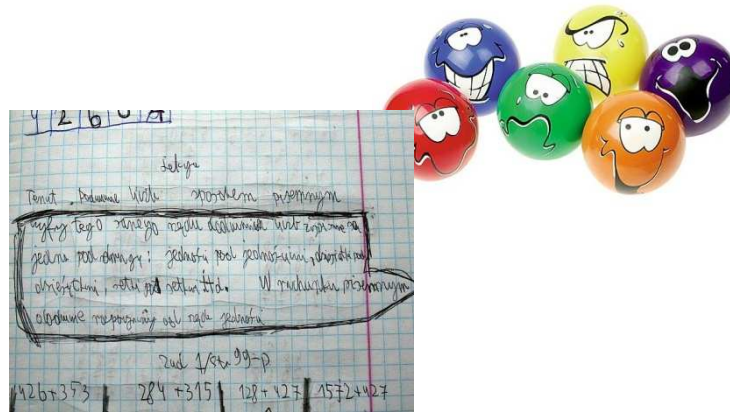 4 2 6
Lekcja
Temat. Dodawanie liczb sposobem pisemnym
cyfry tego samego rzędu
jedna pod drugą: jedności pod jednościami,
dziesiątkami, setki pod setkami itd. W rachunku pisemnym
dodawanie rozpoczynamy od rzędu jedności
zad 1/str 99-p
426+353 284+315 128+427 1572+427